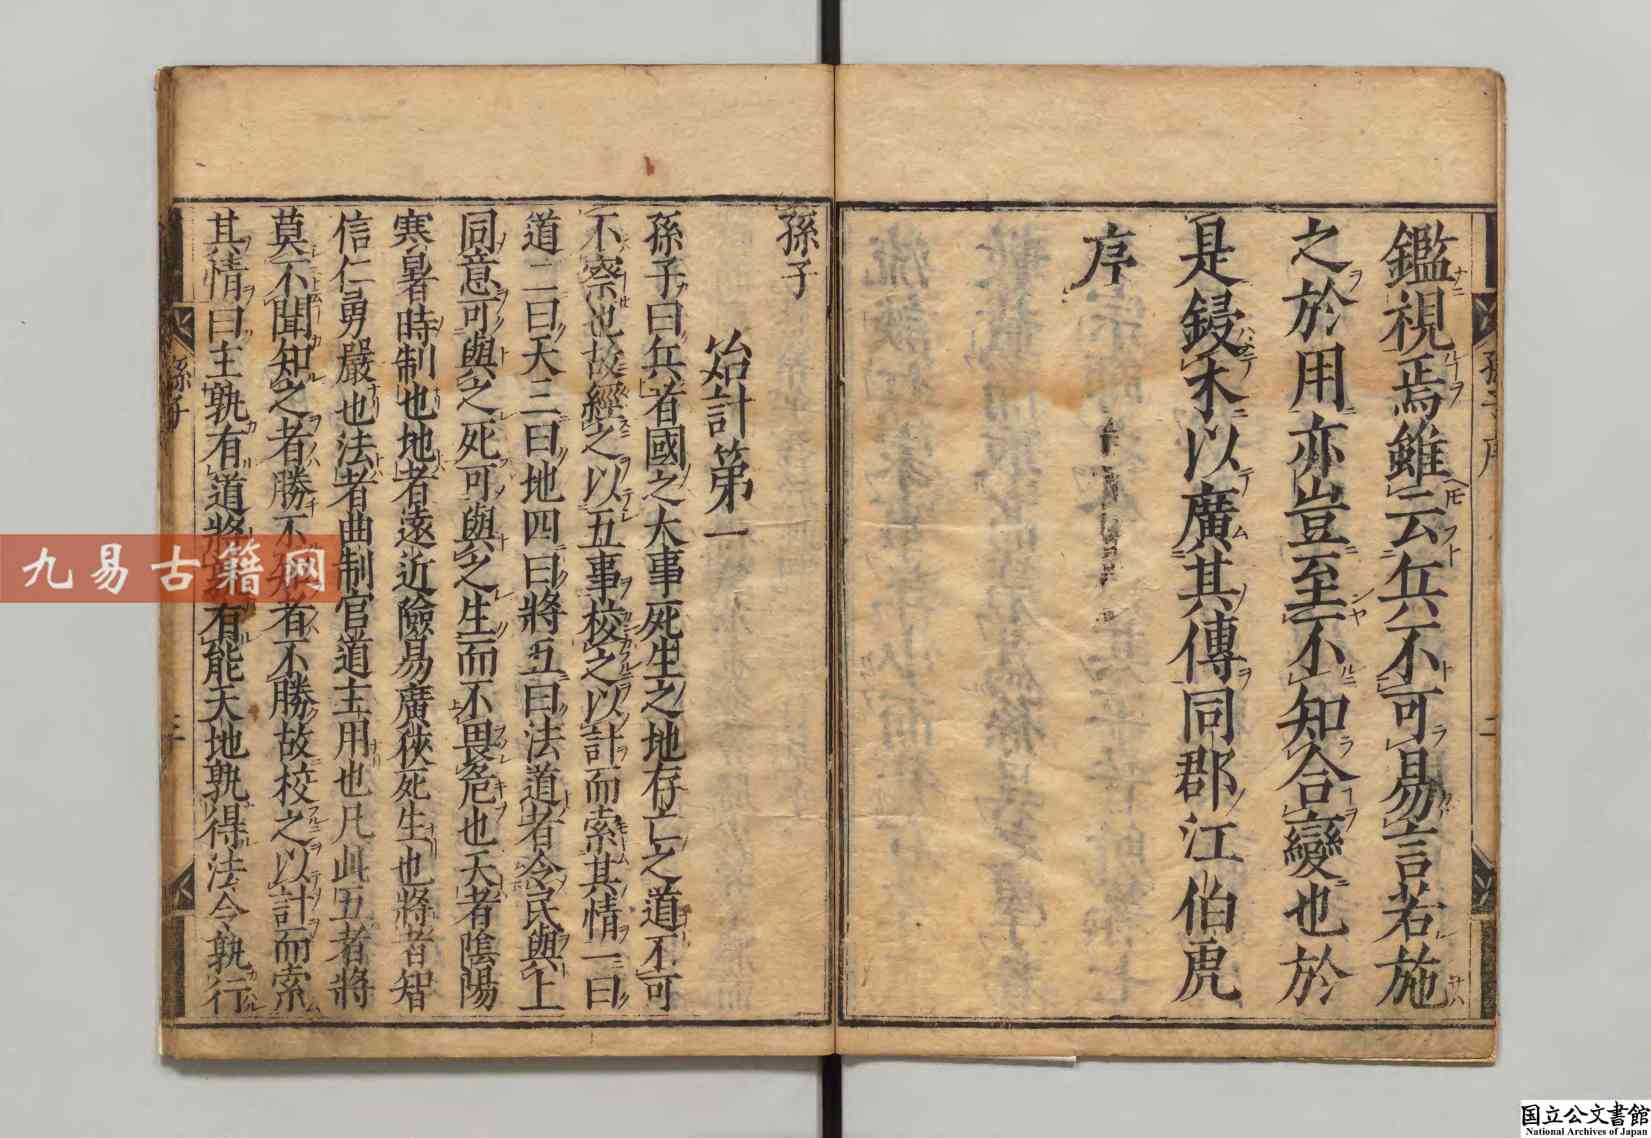 鑑視焉雖云兵不可易言若施
之於用亦豈至不知合變也於
是鋟木以廣其傳同郡江伯虎
序
孫子
始計第一
孫子曰兵者國之大事死生之地存亡之道不可
不察也故經之以五事校之以計而索其情一曰
道二曰天三曰地四曰將五曰法道者令民與上
同意可與之死可與之生而不畏危也天者陰陽
寒暑時制也地者遠近險易廣狹死生也將者智
信仁勇嚴也法者曲制官道主用也凡此五者將
莫不聞知之者勝不知者不勝故校之以計而索
其情曰主孰有道將孰有能天地孰得法令孰行
孫子序
二
孫子
三
九易古籍网
国立公文書館
National Archives of Japan